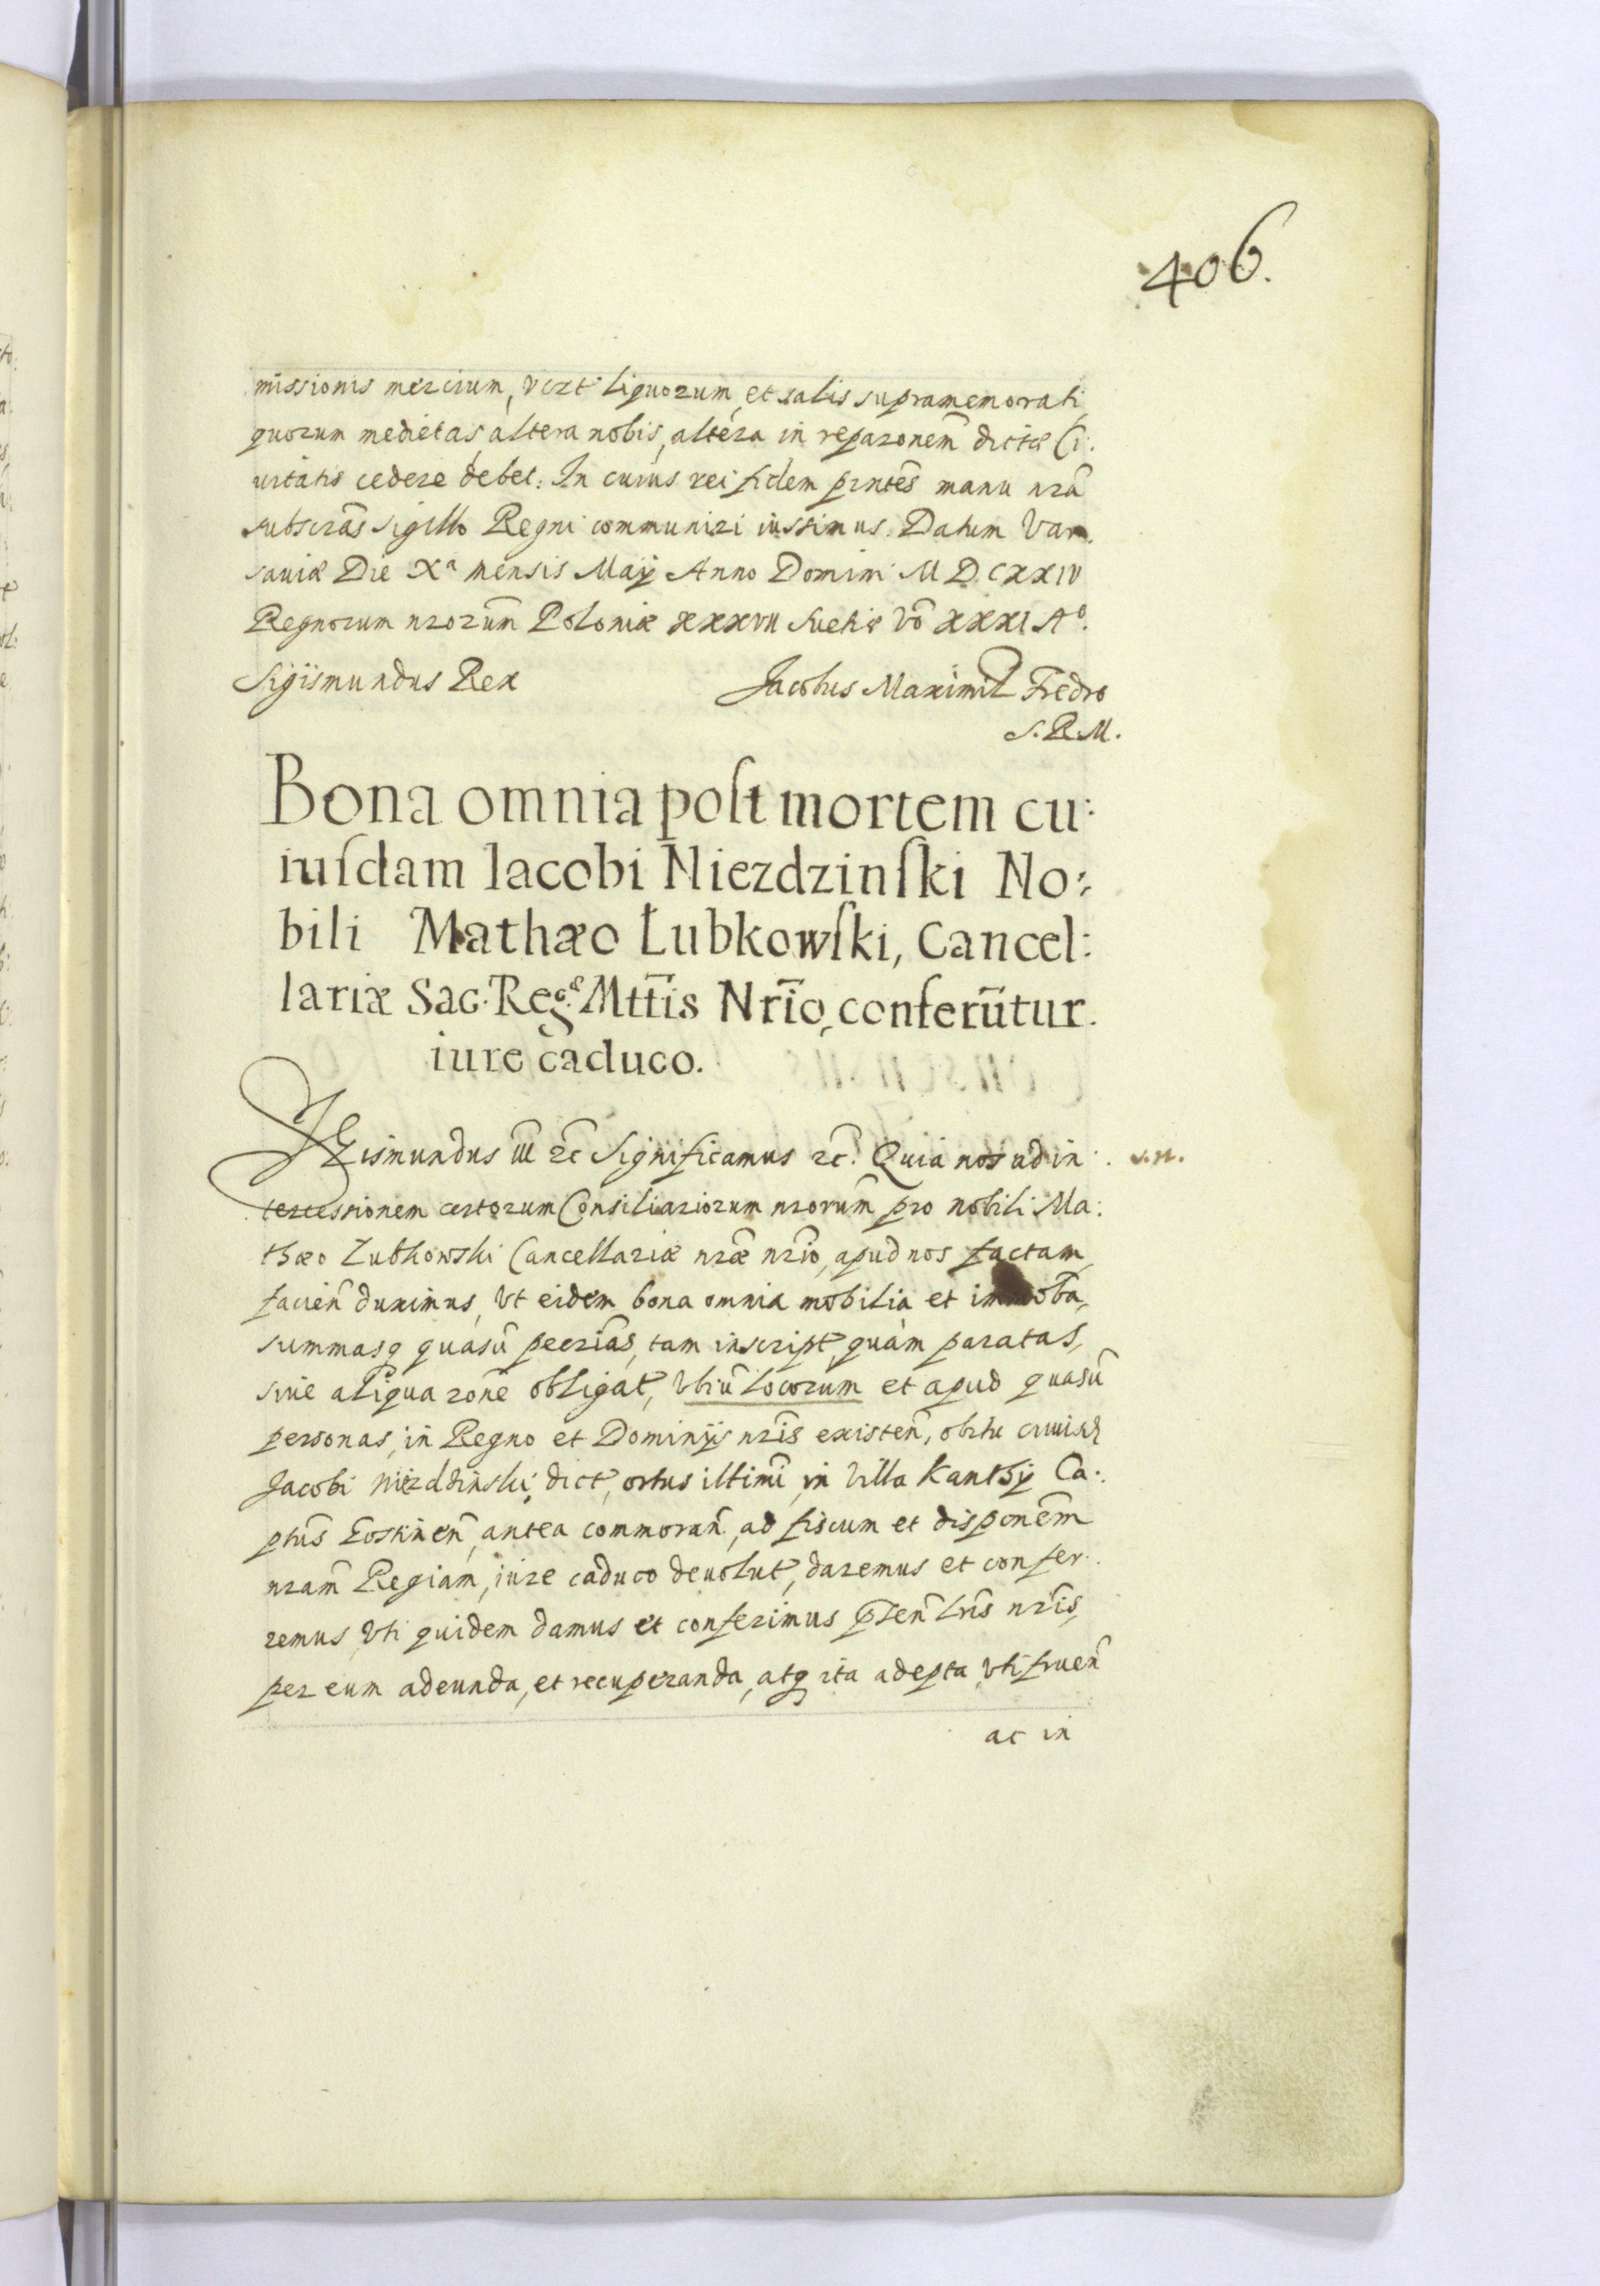 406.
missionis mercium, vert liquorum, et salis supramemorati,
quorum medietas, altera nobis, altera in reparonem̃ dictæ Ci:
uitatis cedere debet. In cuius rei fidem pr̃ntes manu nr̃a
subscr̃as sigillo Regni communiri iussimus. Datum Var:
sauiæ Die Xª mensis Maij Anno Domini M D C XXIV
Regnorum nr̃orum Poloniæ XXXVII Suetiæ Vo XXXI Aº.
Sigismundus Rex Jacobus Maximil Fredro
S. R. M.
Bona omnia post mortem cu:
iusdam Iacobi Niezdzinski No:
bili Mathæo Lubkowski, Cancel:
lariæ Sac. Reg. Mttis Nrio, conferūtur
iure caduco.
Sigismundus III etc Significamus etc. Quia nos ad in: s.n.
tercessionem certorum Consiliariorum nrorum pro nobili Ma:
thæo Lubkowski Cancellariæ nræ nrio, apud nos factam,
facień duximus, Vt eidem bona omnia mobilia et immoba,
summasq quasuis pecrias, tam inscript, quàm paratas,
siue aliqua rone obligat, Vbiuis locorum et apud quasuis
personas, in Regno et Dominijs nris existeñ, obitu cuiusd
Jacobi Niezdzinski, dict, ortus illtimi, in Villa Kanthy Ca:
ptus antea commorañ, ad fiscum et disponem
nram Regiam, iure caduco deuolut, daremus et confer:
remus, Vti quidem damus et conferimus pñteñ lris nris,
per eum adeunda, et recuperanda, atq ita adepta, Vtifrueñ
ac in